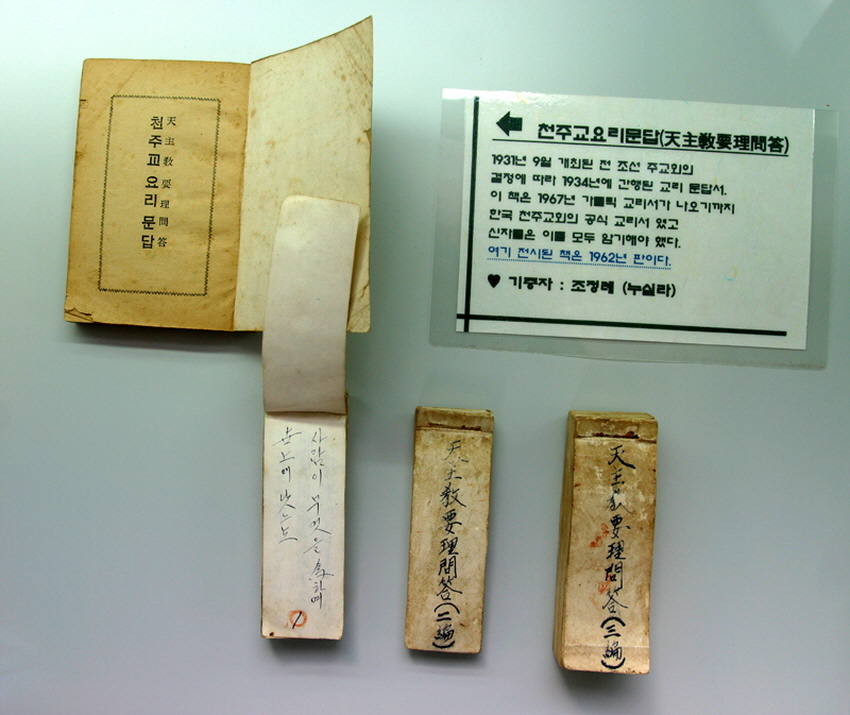 天主教要理問答
천주교 요리 문답
천주교요리문답(天主教要理問答)
1931년 9월 개최된 전 조선 주교회의
결정에 따라 1934년에 간행된 교리 문답서.
이 책은 1967년 가톨릭 교리서가 나오기까지
한국 천주교회의 공식 교리서 였고
신자들은 이를 모두 암기해야 했다.
여기 전시된 책은 1962년 판이다.
기증자 : 조정례 (누실라)
사람이 무엇을 爲하여
世上에 낫느뇨
1
天主教要理問答(二編)
天主教要理問答(三編)